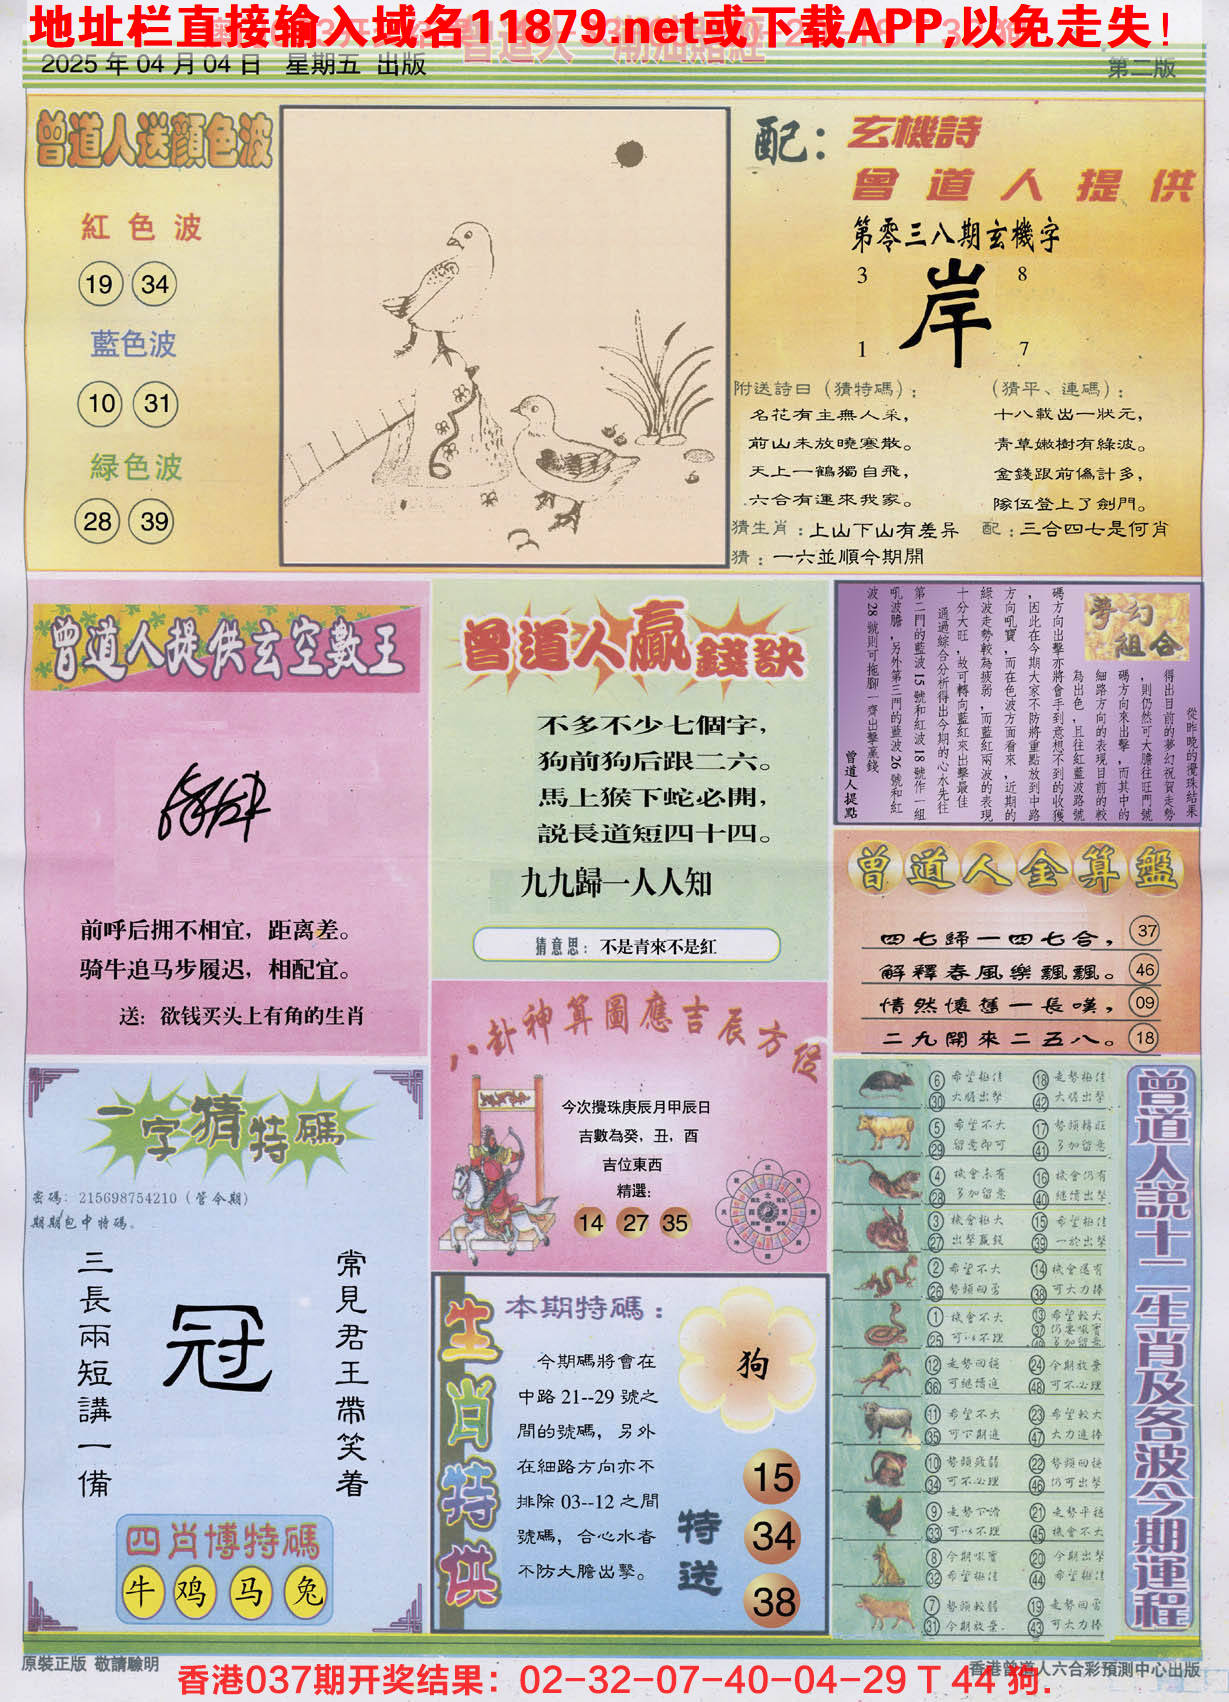 地址栏直接输入域名11879.net或下载APP,以免走失!
2025年04月04日 星期五 出版
第二版
曾道人送顏色波
紅色波
19 34
藍色波
10 31
緑色波
28 39
配：玄機詩
曾道人提供
第零三八期玄機字
3 8
岸
1 7
附送詩曰（猜特碼）：
名花有主無人采，
前山未放曉寒散。
天上一鶴獨自飛，
六合有運來我家。
（猜平、連碼）：
十八載出一狀元，
青草嫩樹有綠波。
金錢跟前僞計多，
隊伍登上了劍門。
猜生肖：上山下山有差异 配：三合四七是何肖
猜：一六並順今期開
曾道人提供玄空數王
前呼后拥不相宜，距离差。
骑牛追马步履迟，相配宜。
送：欲钱买头上有角的生肖
曾道人贏錢訣
不多不少七個字，
狗前狗后跟二六。
馬上猴下蛇必開，
説長道短四十四。
九九歸一人人知
猜意思：不是青來不是紅
夢幻組合
從昨晚的攪珠結果
得出目前的夢幻祝賀走勢
，則仍然可大膽往旺門號
碼方向來出擊，而其中的
細路方向的表現目前的較
為出色，且往紅藍波路號
碼方向出擊亦將會手到意想不到的收獲
，因此在今期大家不防將重點放到中路
方向吼寶，而在色波方面看來，近期的
綠波走勢較為疲弱，而藍紅兩波的表現
十分大旺，故可轉向藍紅來出擊最佳
通過綜合分析得出今期的心水先往
第二門的藍波15號和紅波18號作一組
吼波膽，另外第三門的藍波26號和紅
波28號則可拖腳一齊出擊贏錢
曾道人提點
曾道人金算盤
四七歸一四七合， 37
解釋春風樂飄飄。 46
情然懷舊一長嘆， 09
二九開來二五八。 18
八卦神算圖應吉辰方位
今次攪珠庚辰月甲辰日
吉數為癸，丑，酉
吉位東西
精選：
14 27 35
一字猜特碼
密碼：215698754210（管今期）
期期包中特碼。
三長兩短講一備
冠
常見君王帶笑着
四肖博特碼
牛 鸡 马 兔
生肖特供
本期特碼：
今期碼將會在
中路21--29號之
間的號碼，另外
在細路方向亦不
排除03--12之間
號碼，合心水者
不防大膽出擊。
狗
特送
15
34
38
曾道人説十二生肖及各波今期運程
6 30 希望極佳 大膽出擊 18 42 走勢極佳 大膽出擊
5 29 希望不大 留意即可 17 41 勢頭轉旺 多加留意
4 28 機會未有 多加留意 16 40 機會仍有 繼續出擊
3 27 機會極大 出擊贏錢 15 39 希望極佳 一於出擊
2 26 希望不大 勢頭回落 14 38 機會還有 可大力捧
1 25 機會不大 可以不理 13 37 49 希望較大 仍要吼實 多加留意
12 36 走勢回穩 可繼續追 24 48 今期放棄 可不必理
11 35 希望不大 可下期追 23 47 希望較大 大力追捧
10 34 勢頭疲弱 可不必理 22 46 勢頭回穩 仍可出擊
9 33 走勢下滑 可以不理 21 45 走勢平穩 機會不大
8 32 今期吼實 希望極佳 20 44 今期出擊 希望極佳
7 31 勢頭較弱 今期放棄 19 43 走勢回落 可大力捧
原裝正版 敬請驗明
香港曾道人六合彩預測中心出版
香港037期开奖结果：02-32-07-40-04-29 T 44 狗.